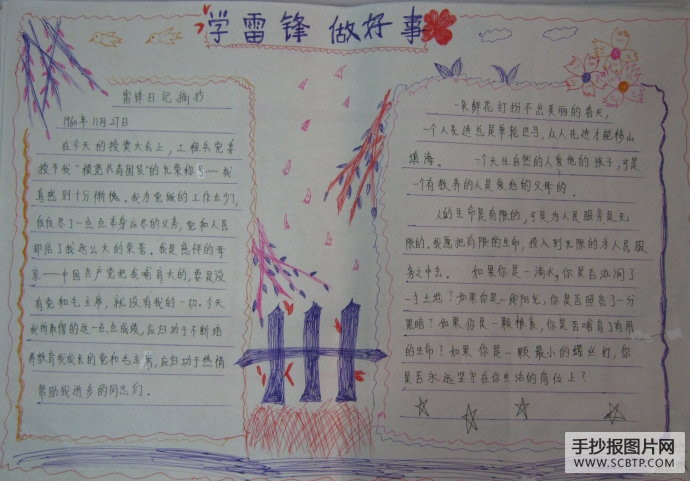 学雷锋 做好事
雷锋日记摘抄
1960年11月27日
在今天的授奖大会上，工程兵党委
授予我"模范共青团员"的光荣称号……我
真感到十分惭愧。我为党做的工作太少了，
仅仅尽了一点点本身应尽的义务，党和人民
却给了我这么大的荣誉。我是慈祥的母
亲——中国共产党把我哺育大的，要是没
有党和毛主席，就没有我的一切。今天
我所取得的这一点点成绩，应归功于不断培
养教育我成长的党和毛主席，应归功于热情
帮助我进步的同志们。
一朵鲜花打扮不出美丽的春天，
一个人先进总是单轮匹马，众人先进才能移山
填海。 一个天生自然的人爱他的孩子，可是
一个有教养的人是爱他的父母的。
人的生命是有限的，可是为人民服务是无
限的。我愿把有限的生命，投入到无限的为人民服
务之中去。 如果你是一滴水，你是否滋润了
一寸土地？如果你是一线阳光，你是否照亮了一分
黑暗？如果你是一颗粮食，你是否哺育了有用
的生命？如果你是一颗最小的螺丝钉，你
是否永远坚守在你生活的岗位上？
手抄报图片网
www.SCBTP.COM